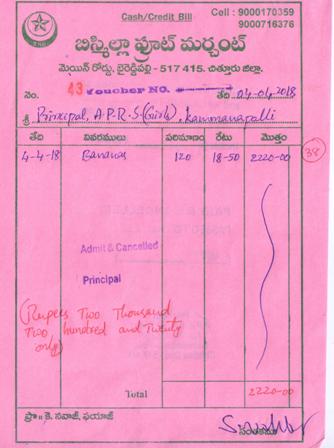 Cash/Credit Bill
Cell : 9000170359
9000716376
బిస్మిల్లా ఫ్రూట్ మర్చంట్
మెయిన్ రోడ్డు, బైరెడ్డిపల్లి - 517 415. చిత్తూరు జిల్లా.
నెం. 43 Voucher NO. తేది 04-04-2018
శ్రీ Principal, A.P.R.S (Girls), Kammanapalli
తేది వివరములు పరిమాణం రేటు మొత్తం
4-4-18 Bananas 120 18-50 2220-00
38
Admit & Cancelled
Principal
(Rupees Two Thousand
Two hundred and Twenty
only)
Total 2220-00
ప్రొ॥ కె. నవాజ్, ఫయాజ్
సంతకము